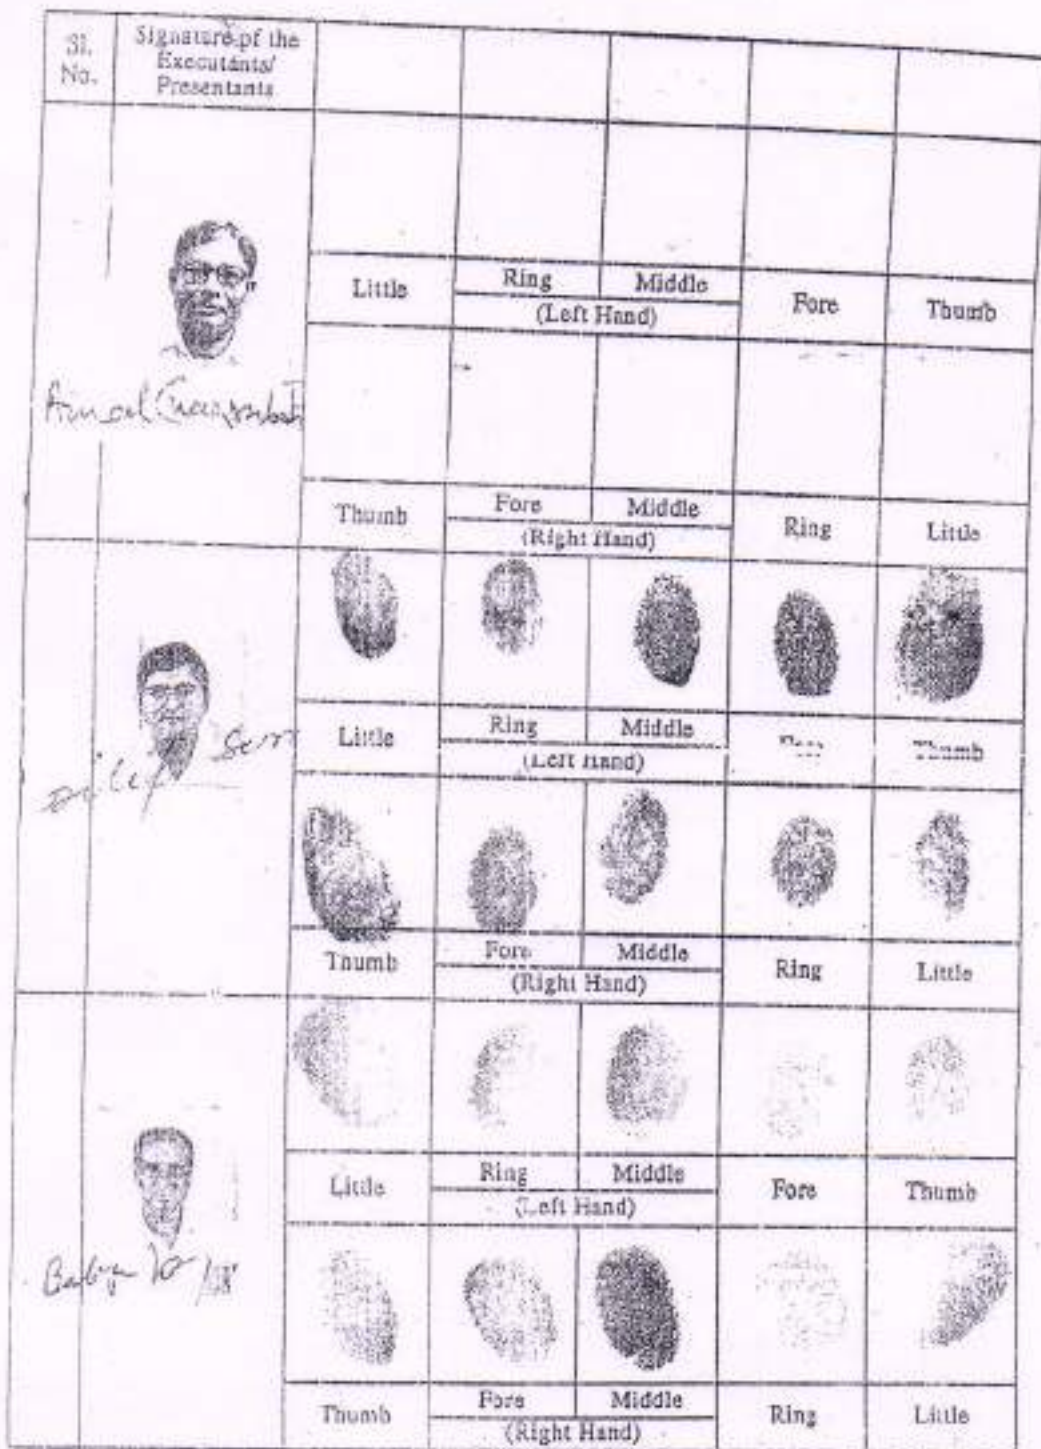 Sl. No.
Signature of the Executants/ Presentants
Little Ring Middle Fore Thumb
(Left Hand)
Thumb Fore Middle Ring Little
(Right Hand)
Little Ring Middle Thumb
(Left Hand)
Thumb Fore Middle Ring Little
(Right Hand)
Little Ring Middle Fore Thumb
(Left Hand)
Thumb Fore Middle Ring Little
(Right Hand)